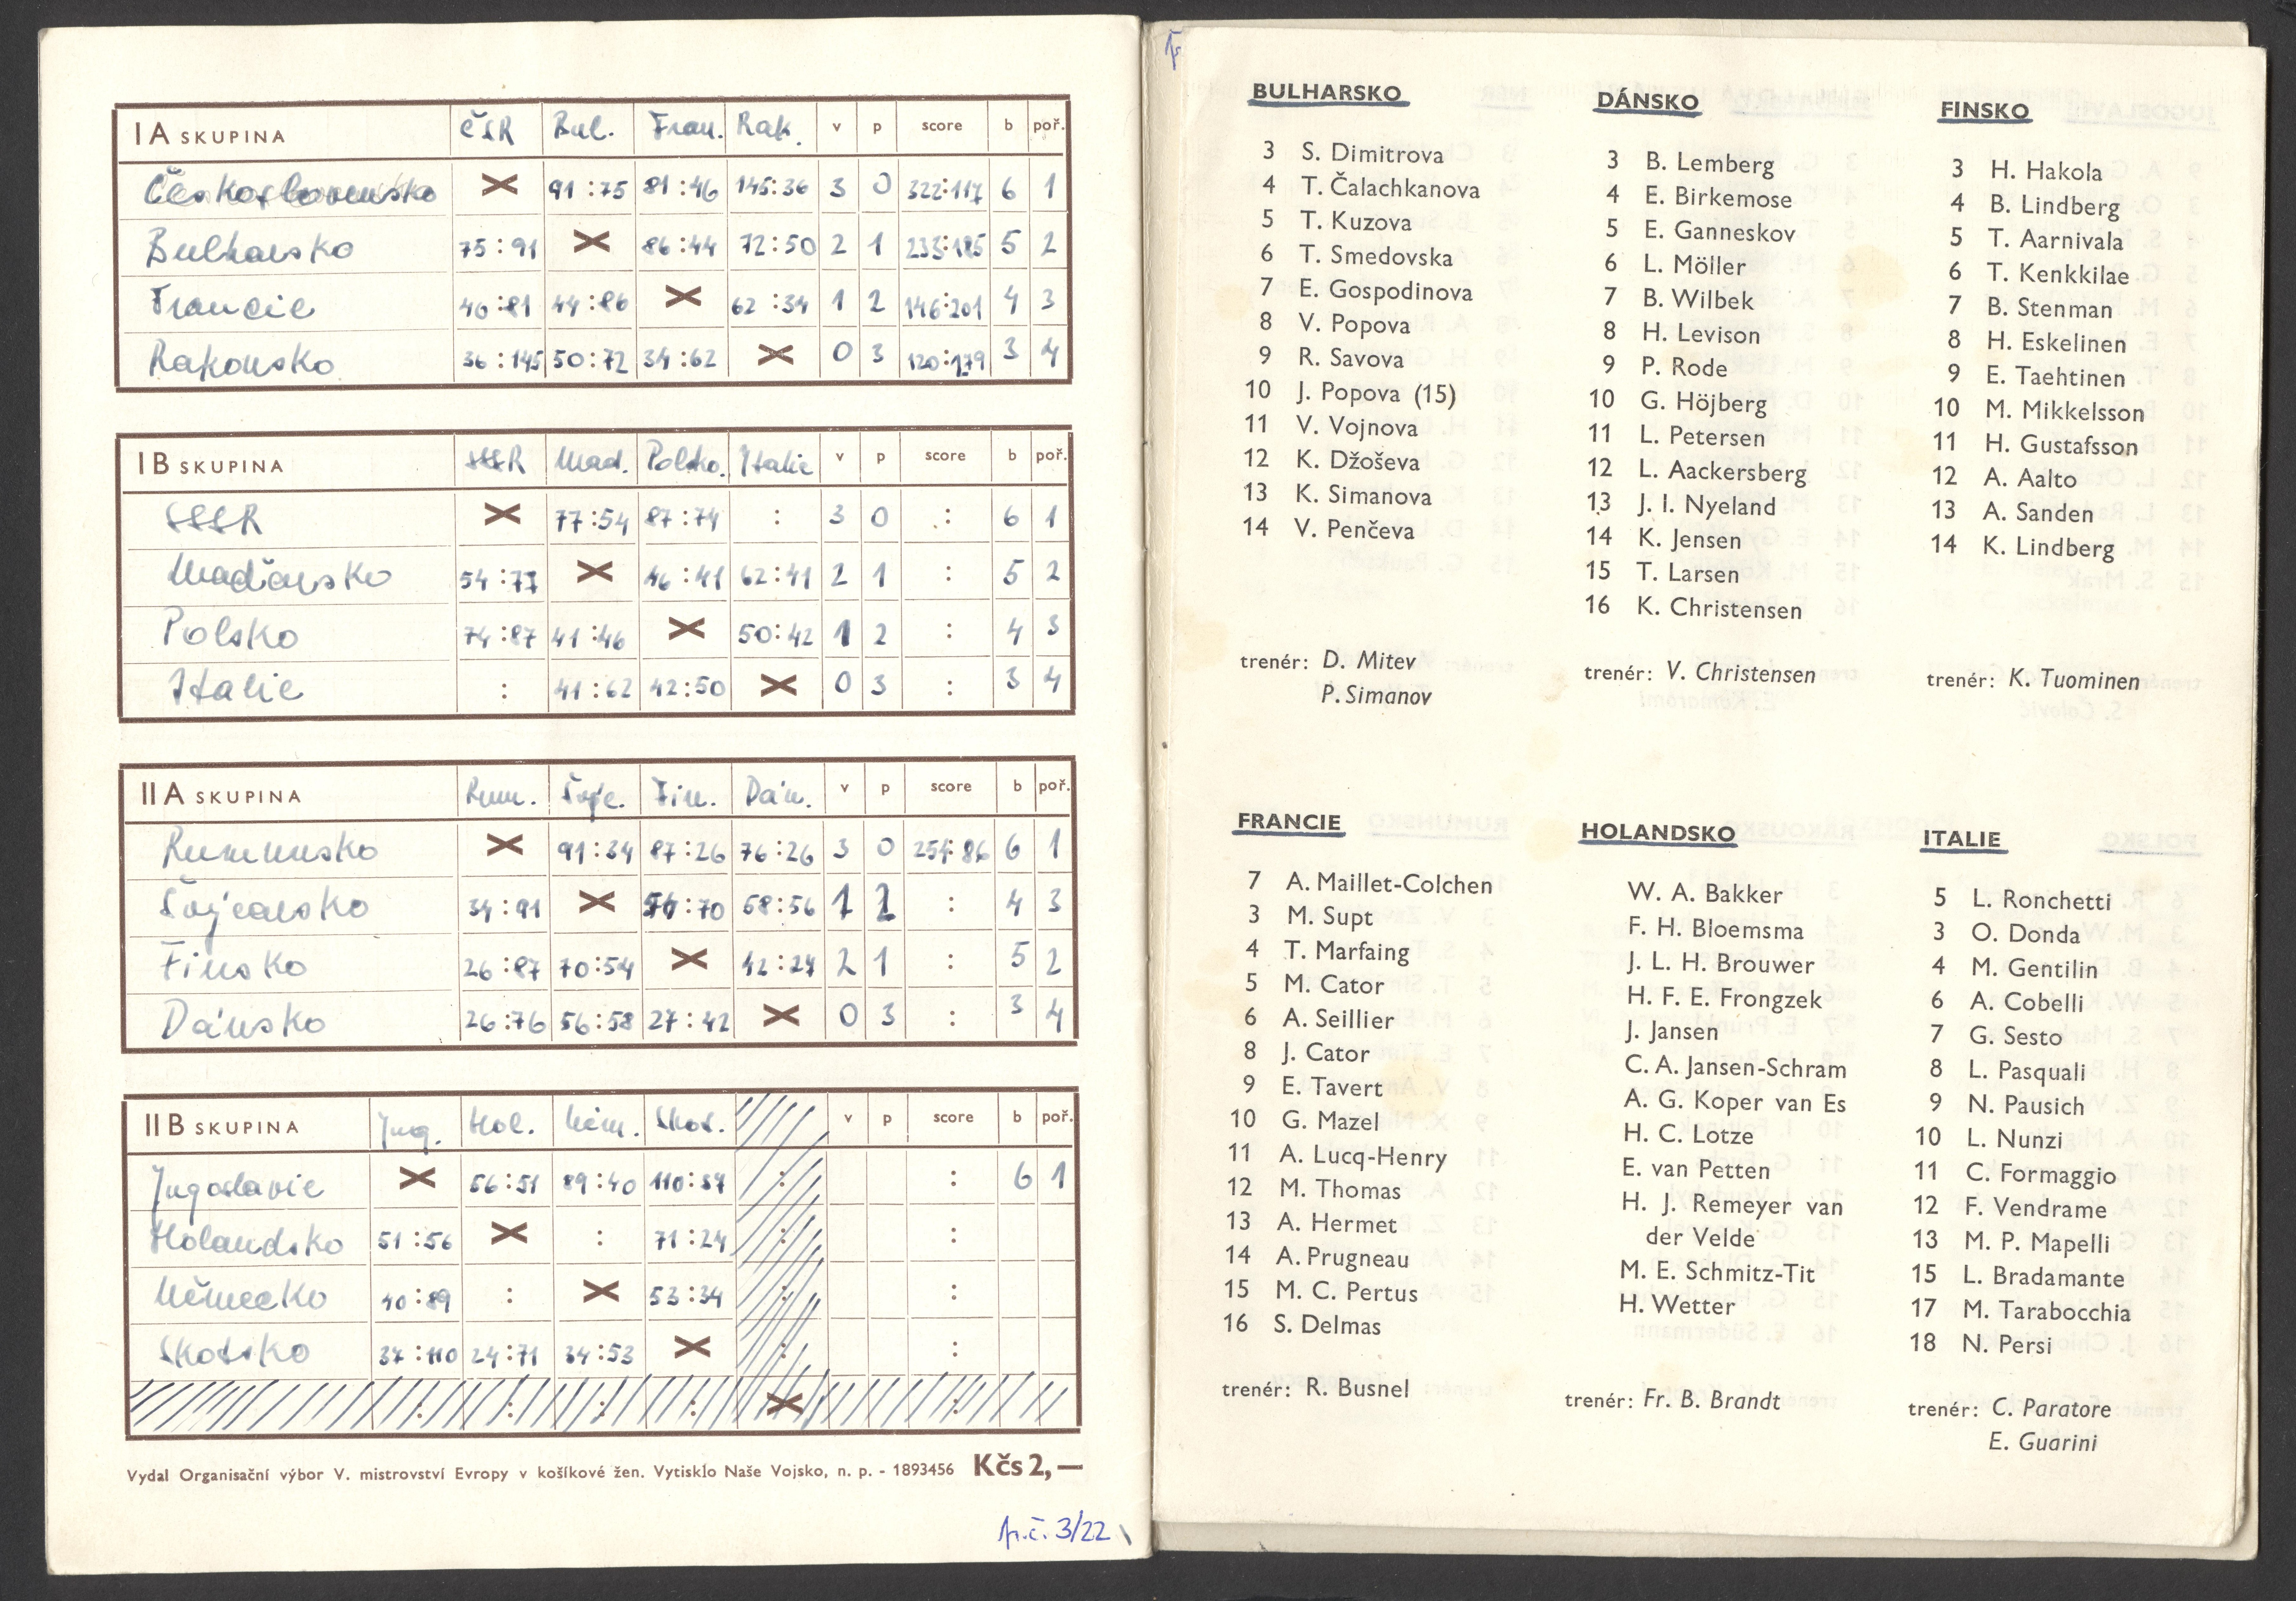 I A SKUPINA ČSR Bul. Fran. Rak. v p score b poř.
Československo × 91:75 81:46 145:36 3 0 322:117 6 1
Bulharsko 75:91 × 86:44 72:50 2 1 233:185 5 2
Francie 46:81 44:86 × 62:34 1 2 146:201 4 3
Rakousko 36:145 50:72 34:62 × 0 3 120:179 3 4
I B SKUPINA SSSR Mad. Polsko. Italie v p score b poř.
SSSR × 77:54 87:74 : 3 0 : 6 1
Maďarsko 54:77 × 46:41 62:41 2 1 : 5 2
Polsko 74:87 41:46 × 50:42 1 2 : 4 3
Italie : 41:62 42:50 × 0 3 : 3 4
II A SKUPINA Rum. Švýc. Fin. Dán. v p score b poř.
Rumunsko × 91:34 87:26 76:26 3 0 254:86 6 1
Švýcarsko 34:91 × 54:70 58:56 1 2 : 4 3
Finsko 26:87 70:54 × 42:27 2 1 : 5 2
Dánsko 26:76 56:58 27:42 × 0 3 : 3 4
II B SKUPINA Jug. Hol. Něm. Skot. v p score b poř.
Jugoslavie × 56:51 89:40 110:37 : : 6 1
Holandsko 51:56 × : 71:24 : :
Německo 40:89 : × 53:34 : :
Skotsko 37:110 24:71 34:53 × : :
: : : : × :
Vydal Organisační výbor V. mistrovství Evropy v košíkové žen. Vytisklo Naše Vojsko, n. p. - 1893456 Kčs 2,—
př.č. 3/22
BULHARSKO
3 S. Dimitrova
4 T. Čalachkanova
5 T. Kuzova
6 T. Smedovska
7 E. Gospodinova
8 V. Popova
9 R. Savova
10 J. Popova (15)
11 V. Vojnova
12 K. Džoševa
13 K. Simanova
14 V. Penčeva
trenér: D. Mitev
P. Simanov
DÁNSKO
3 B. Lemberg
4 E. Birkemose
5 E. Ganneskov
6 L. Möller
7 B. Wilbek
8 H. Levison
9 P. Rode
10 G. Höjberg
11 L. Petersen
12 L. Aackersberg
13 J. I. Nyeland
14 K. Jensen
15 T. Larsen
16 K. Christensen
trenér: V. Christensen
FINSKO
3 H. Hakola
4 B. Lindberg
5 T. Aarnivala
6 T. Kenkkilae
7 B. Stenman
8 H. Eskelinen
9 E. Taehtinen
10 M. Mikkelsson
11 H. Gustafsson
12 A. Aalto
13 A. Sanden
14 K. Lindberg
trenér: K. Tuominen
FRANCIE
7 A. Maillet-Colchen
3 M. Supt
4 T. Marfaing
5 M. Cator
6 A. Seillier
8 J. Cator
9 E. Tavert
10 G. Mazel
11 A. Lucq-Henry
12 M. Thomas
13 A. Hermet
14 A. Prugneau
15 M. C. Pertus
16 S. Delmas
trenér: R. Busnel
HOLANDSKO
W. A. Bakker
F. H. Bloemsma
J. L. H. Brouwer
H. F. E. Frongzek
J. Jansen
C. A. Jansen-Schram
A. G. Koper van Es
H. C. Lotze
E. van Petten
H. J. Remeyer van
der Velde
M. E. Schmitz-Tit
H. Wetter
trenér: Fr. B. Brandt
ITALIE
5 L. Ronchetti
3 O. Donda
4 M. Gentilin
6 A. Cobelli
7 G. Sesto
8 L. Pasquali
9 N. Pausich
10 L. Nunzi
11 C. Formaggio
12 F. Vendrame
13 M. P. Mapelli
15 L. Bradamante
17 M. Tarabocchia
18 N. Persi
trenér: C. Paratore
E. Guarini